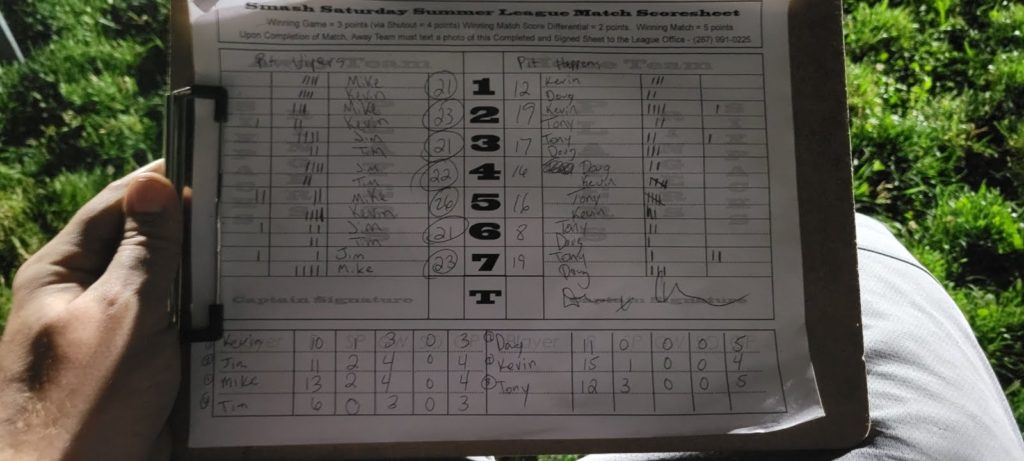 Smash Saturday Summer League Match Scoresheet
Winning Game = 3 points (via Shutout = 4 points) Winning Match Score Differential = 2 points. Winning Match = 5 points
Upon Completion of Match, Away Team must text a photo of this Completed and Signed Sheet to the League Office - (267) 991-0225
Team Pit Happens Home Team
Mike 21 1 12 Kevin
Kevin Doug
Mike 23 2 19 Kevin
Kevin Tony
Jim 21 3 17 Tony
Tim Doug
Jim 22 4 16 Doug
Tim Kevin
Mike 26 5 16 Tony
Kevin Kevin
Jim 21 6 8 Tony
Tim Doug
Jim 23 7 19 Tony
Mike Doug
Captain Signature T Signature
Kevin 10 3 0 3 Doug 11 0 0 0 5
Jim 11 2 4 0 4 Kevin 15 1 0 0 4
Mike 13 2 4 0 4 Tony 12 3 0 0 5
Tim 6 0 3 0 3